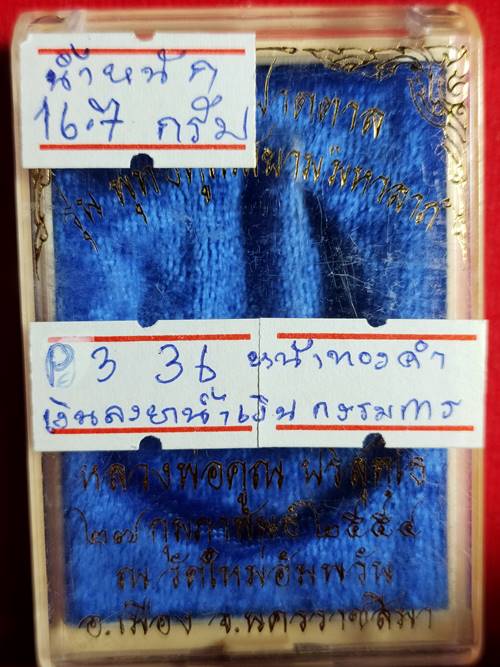 น้ำหนัก
16.7 กรัม
รุ่น พุทธคูณสยามมหาลาภ
P 3 36 หน้าทองคำ
เงินลงยาน้ำเงิน กรรมการ
หลวงพ่อคูณ ปริสุทฺโธ
๒๗ กุมภาพันธ์ ๒๕๕๔
ณ วัดใหม่อัมพวัน
อ.เมือง จ.นครราชสีมา